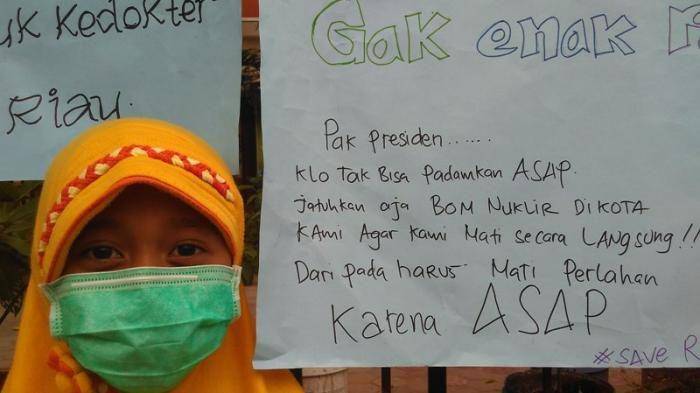 uk Kedokter
Riau.
Gak enak
Pak presiden......
Klo Tak Bisa Padamkan ASAP.
Jatuhkan aja BOM NUKLIR DI KOTA
KAmi Agar Kami Mati secara LANGSUNG!!
Dari pada harus Mati Perlahan
Karena ASAP
#SAVE R